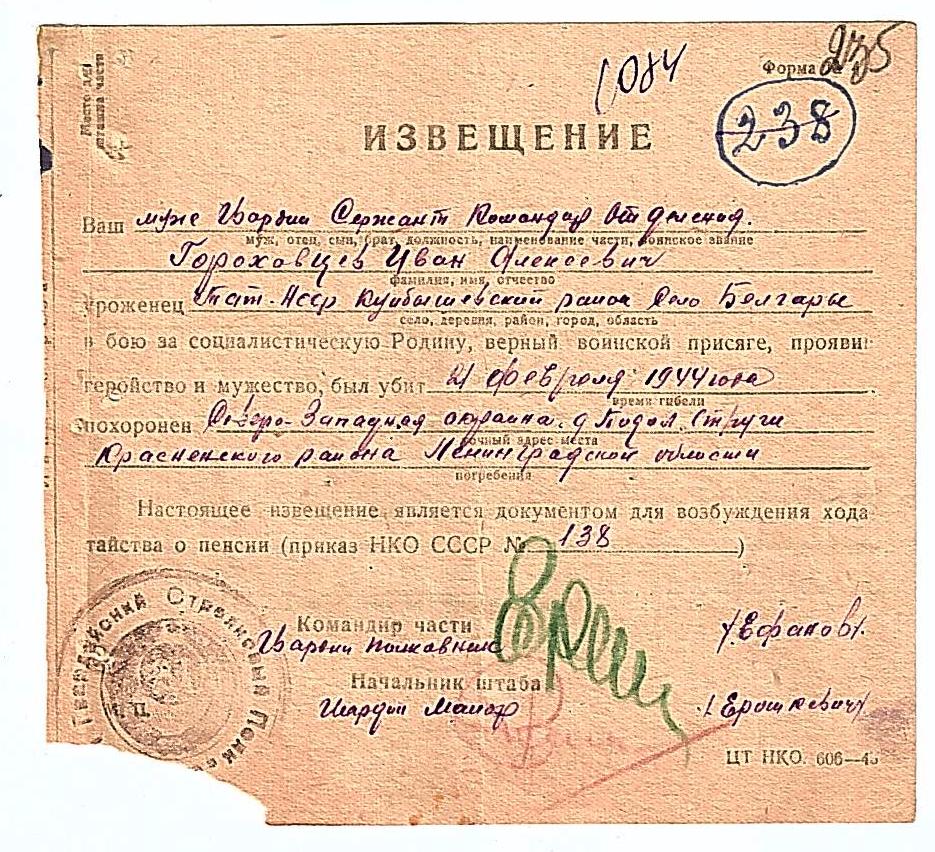 1084
235
Форма
238
Место для
штампа части
ИЗВЕЩЕНИЕ
Ваш муж Гвардии Сержант Командир Отделения.
муж, отец, сын, брат, должность, наименование части, воинское звание
Гороховцев Иван Алексеевич
фамилия, имя, отчество
уроженец Тат. Асср Куйбышевский район Село Белгары
село, деревня, район, город, область
в бою за социалистическую Родину, верный воинской присяге, прояви
геройство и мужество, был убит 21 февраля 1944 года
время гибели
похоронен Северо-Западная окраина д Подол. Струги
точный адрес места
Красненского района Ленинградской области
погребения
Настоящее извещение является документом для возбуждения хода
тайства о пенсии (приказ НКО СССР № 138 )
Гвардейский Стрелковый Полк
Командир части
Гвардии полковник /Ефанов/.
Начальник штаба
Гвардии Майор /Ерошкевич/.
ЦТ НКО. 606—43